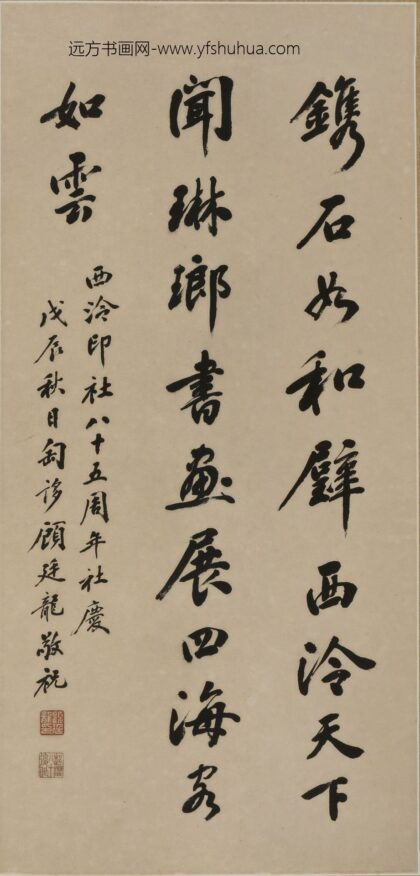 远方书画网-www.yfshuhua.com
鐫石如和璧西泠天下
聞琳瑯書畫展四海客
如雲
西泠印社八十五周年社慶
戊辰秋日匋誃顧廷龍敬祝